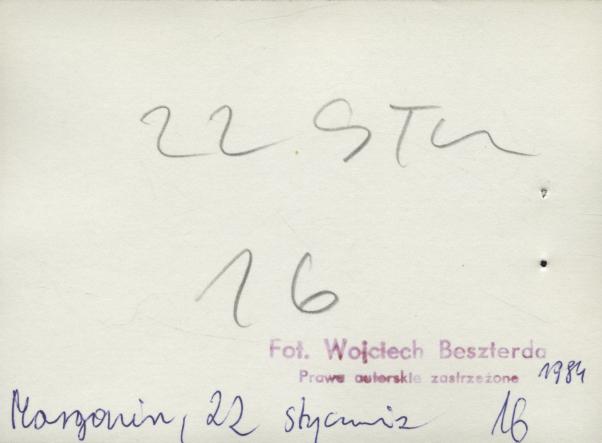 22 STY
16
Fot. Wojciech Beszterda
Prawa autorskie zastrzeżone 1984
Margonin, 22 stycznia 16